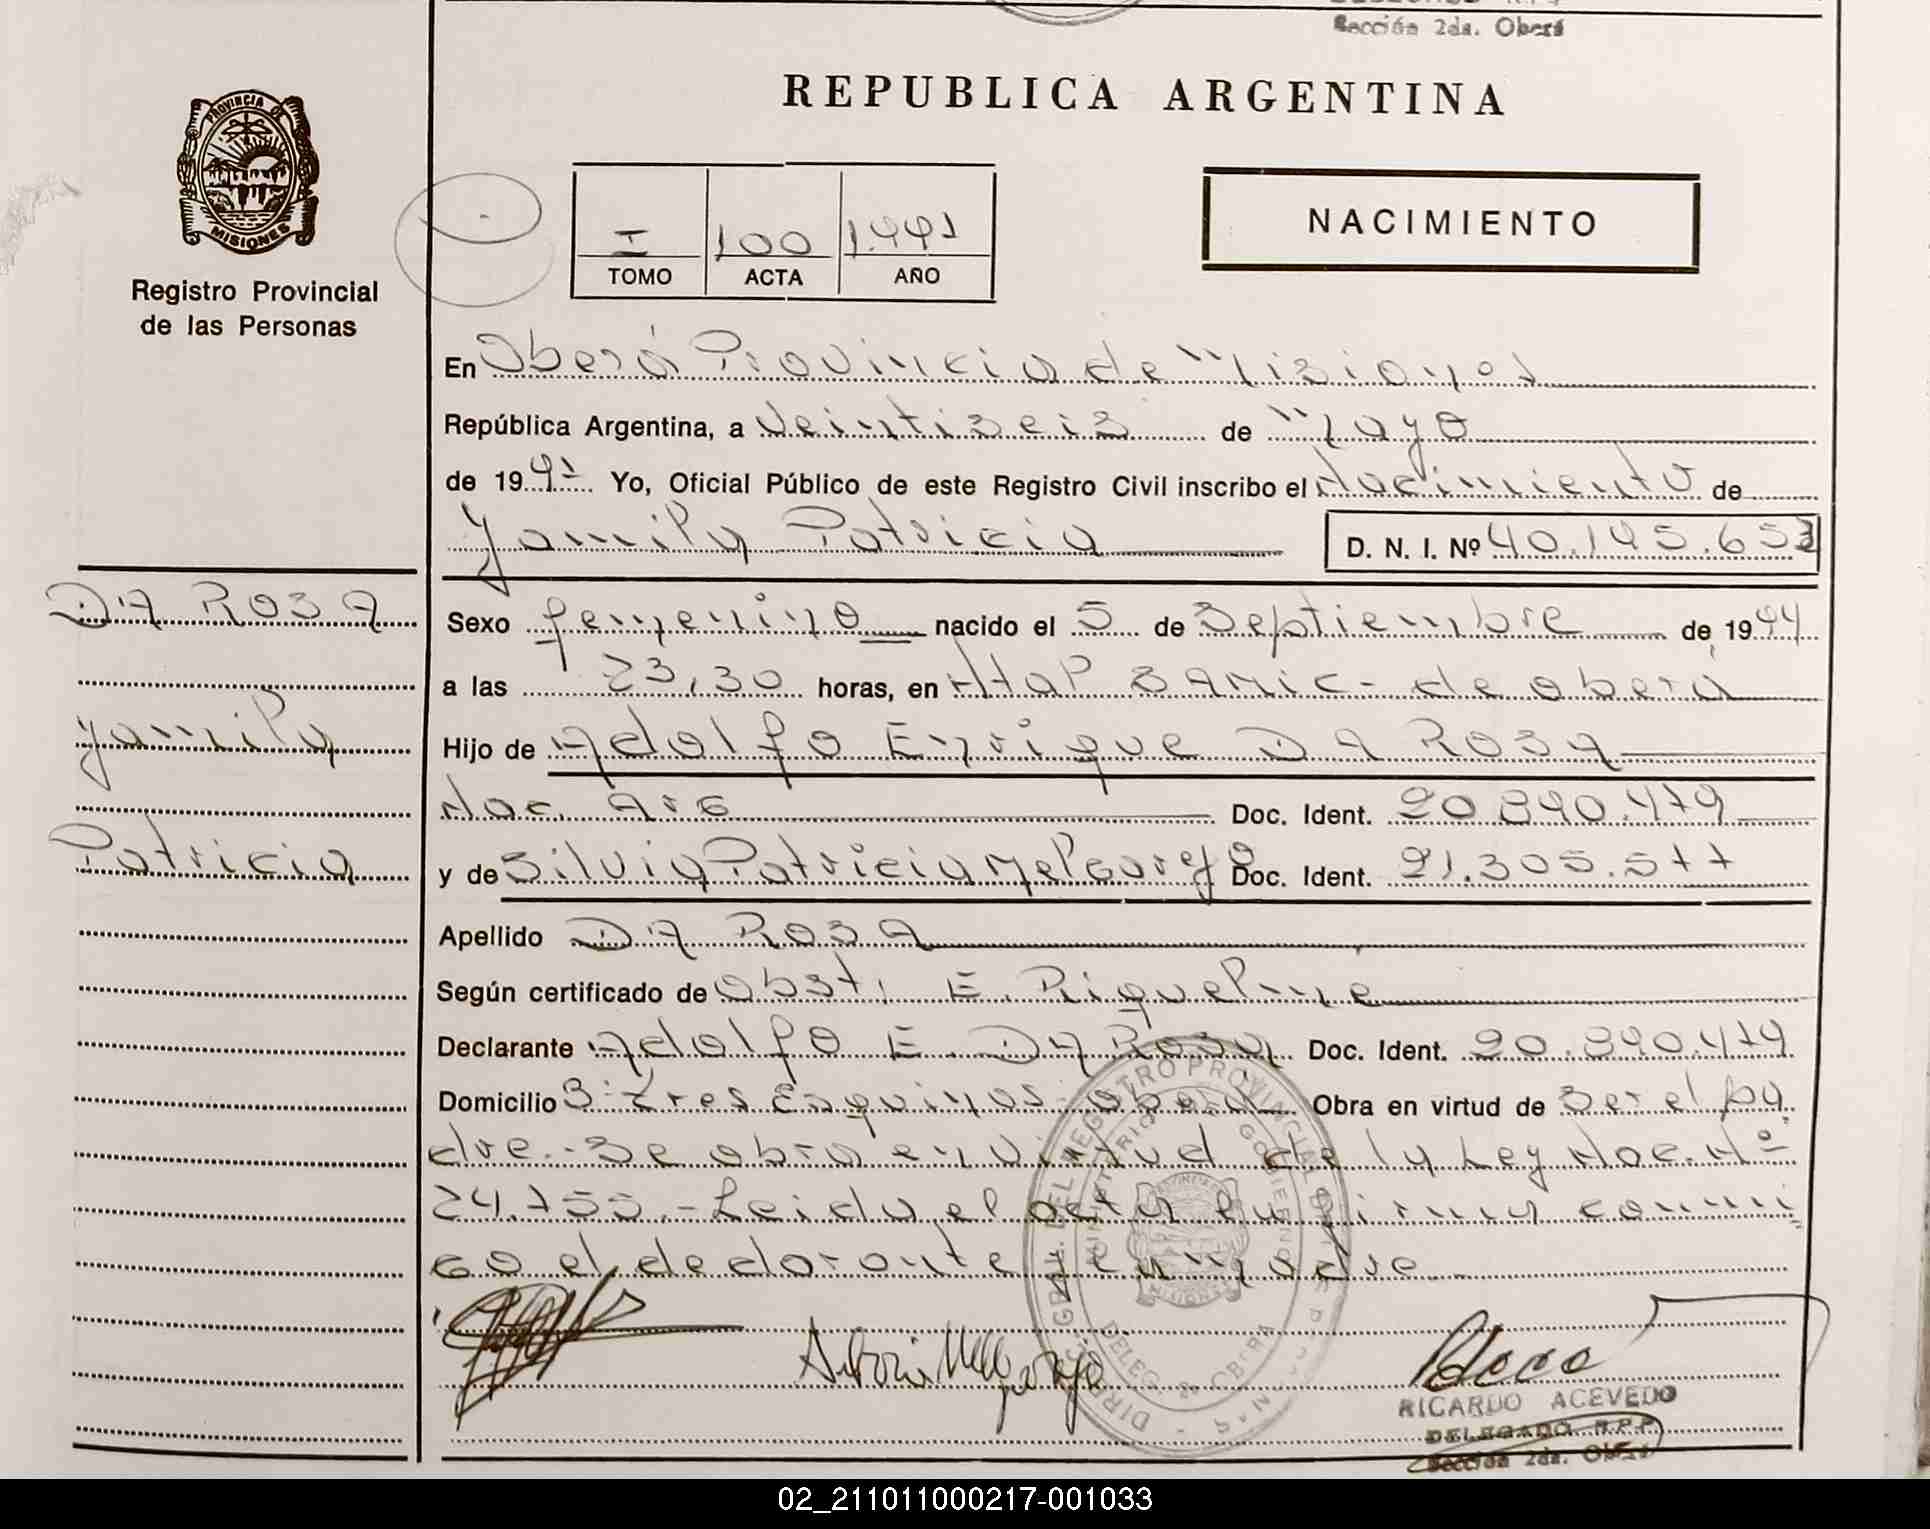 Sección 2da. Oberá
REPUBLICA ARGENTINA
PROVINCIA DE
MISIONES
Registro Provincial
de las Personas
I 100
TOMO ACTA AÑO
NACIMIENTO
En Oberá Provincia de Misiones
República Argentina, a Veintiseis de Mayo
de 19 Yo, Oficial Público de este Registro Civil inscribo el Nacimiento de
Yamila Patricia D. N. I. Nº 40.145.653
DA ROSA
Yamila
Patricia
Sexo femenino nacido el 5 de Septiembre de 19
a las 23,30 horas, en Htal SAMIC - de Oberá
Hijo de Adolfo Enrique DA ROSA
Nac. Arg Doc. Ident. 20.890.479
y de Silvia Patricia Melgarejo Doc. Ident. 21.305.577
Apellido DA ROSA
Según certificado de Obst. E. Riquelme
Declarante Adolfo E. DA ROSA Doc. Ident. 20.890.479
Domicilio B: Tres Esquinas Oberá Obra en virtud de Ser el pa
dre.- Se obra en virtud de la Ley Nac. Nº
24.755.- Leida el acta la firman conmi
go el declarante y la madre
RICARDO ACEVEDO
DELEGADO R.P.P.
Sección 2da. Oberá
02_211011000217-001033